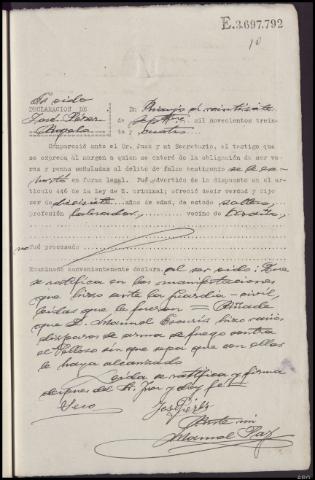 E.3.697.792
10
DECLARACION DE
José Pérez
En Monzón el veintisiete
de mil novecientos trein-
ta y cuatro.
Compareció ante el Sr. Juez y mi Secretario, el testigo que
se expresa al margen a quien se enteró de la obligación de ser ve-
raz y penas señaladas al delito de falso testimonio se le exhortó
en forma legal. Fué advertido de lo dispuesto en el ar-
tículo 446 de la Ley de E. criminal; ofreció decir verdad y dijo
ser de diecisiete años de edad, de estado soltero,
profesión labrador, vecino de
no Fué procesado
Examinado convenientemente declara: al ser oído: Que
se ratifica en las manifestaciones
que hizo ante la Guardia civil,
leídas que le fueron = Añade
que D. Manuel hizo varios
disparos de arma de fuego contra
el sin que sepa que con ellos
le haya alcanzado
Leída se ratifica y firma
después del Sr. Juez y doy fe =
José Pérez
Ante mi
Manuel Paz